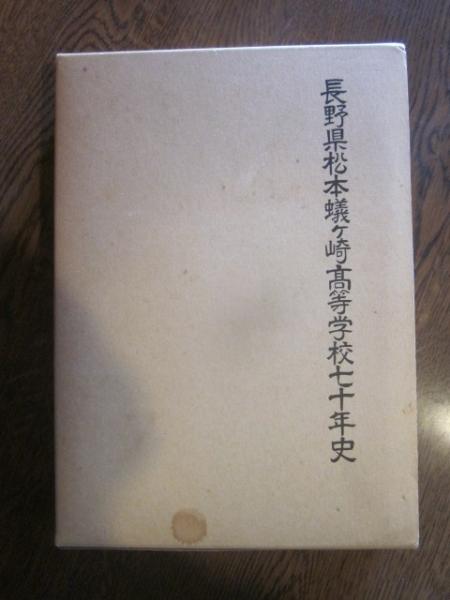 長野県松本蟻ヶ崎高等学校七十年史